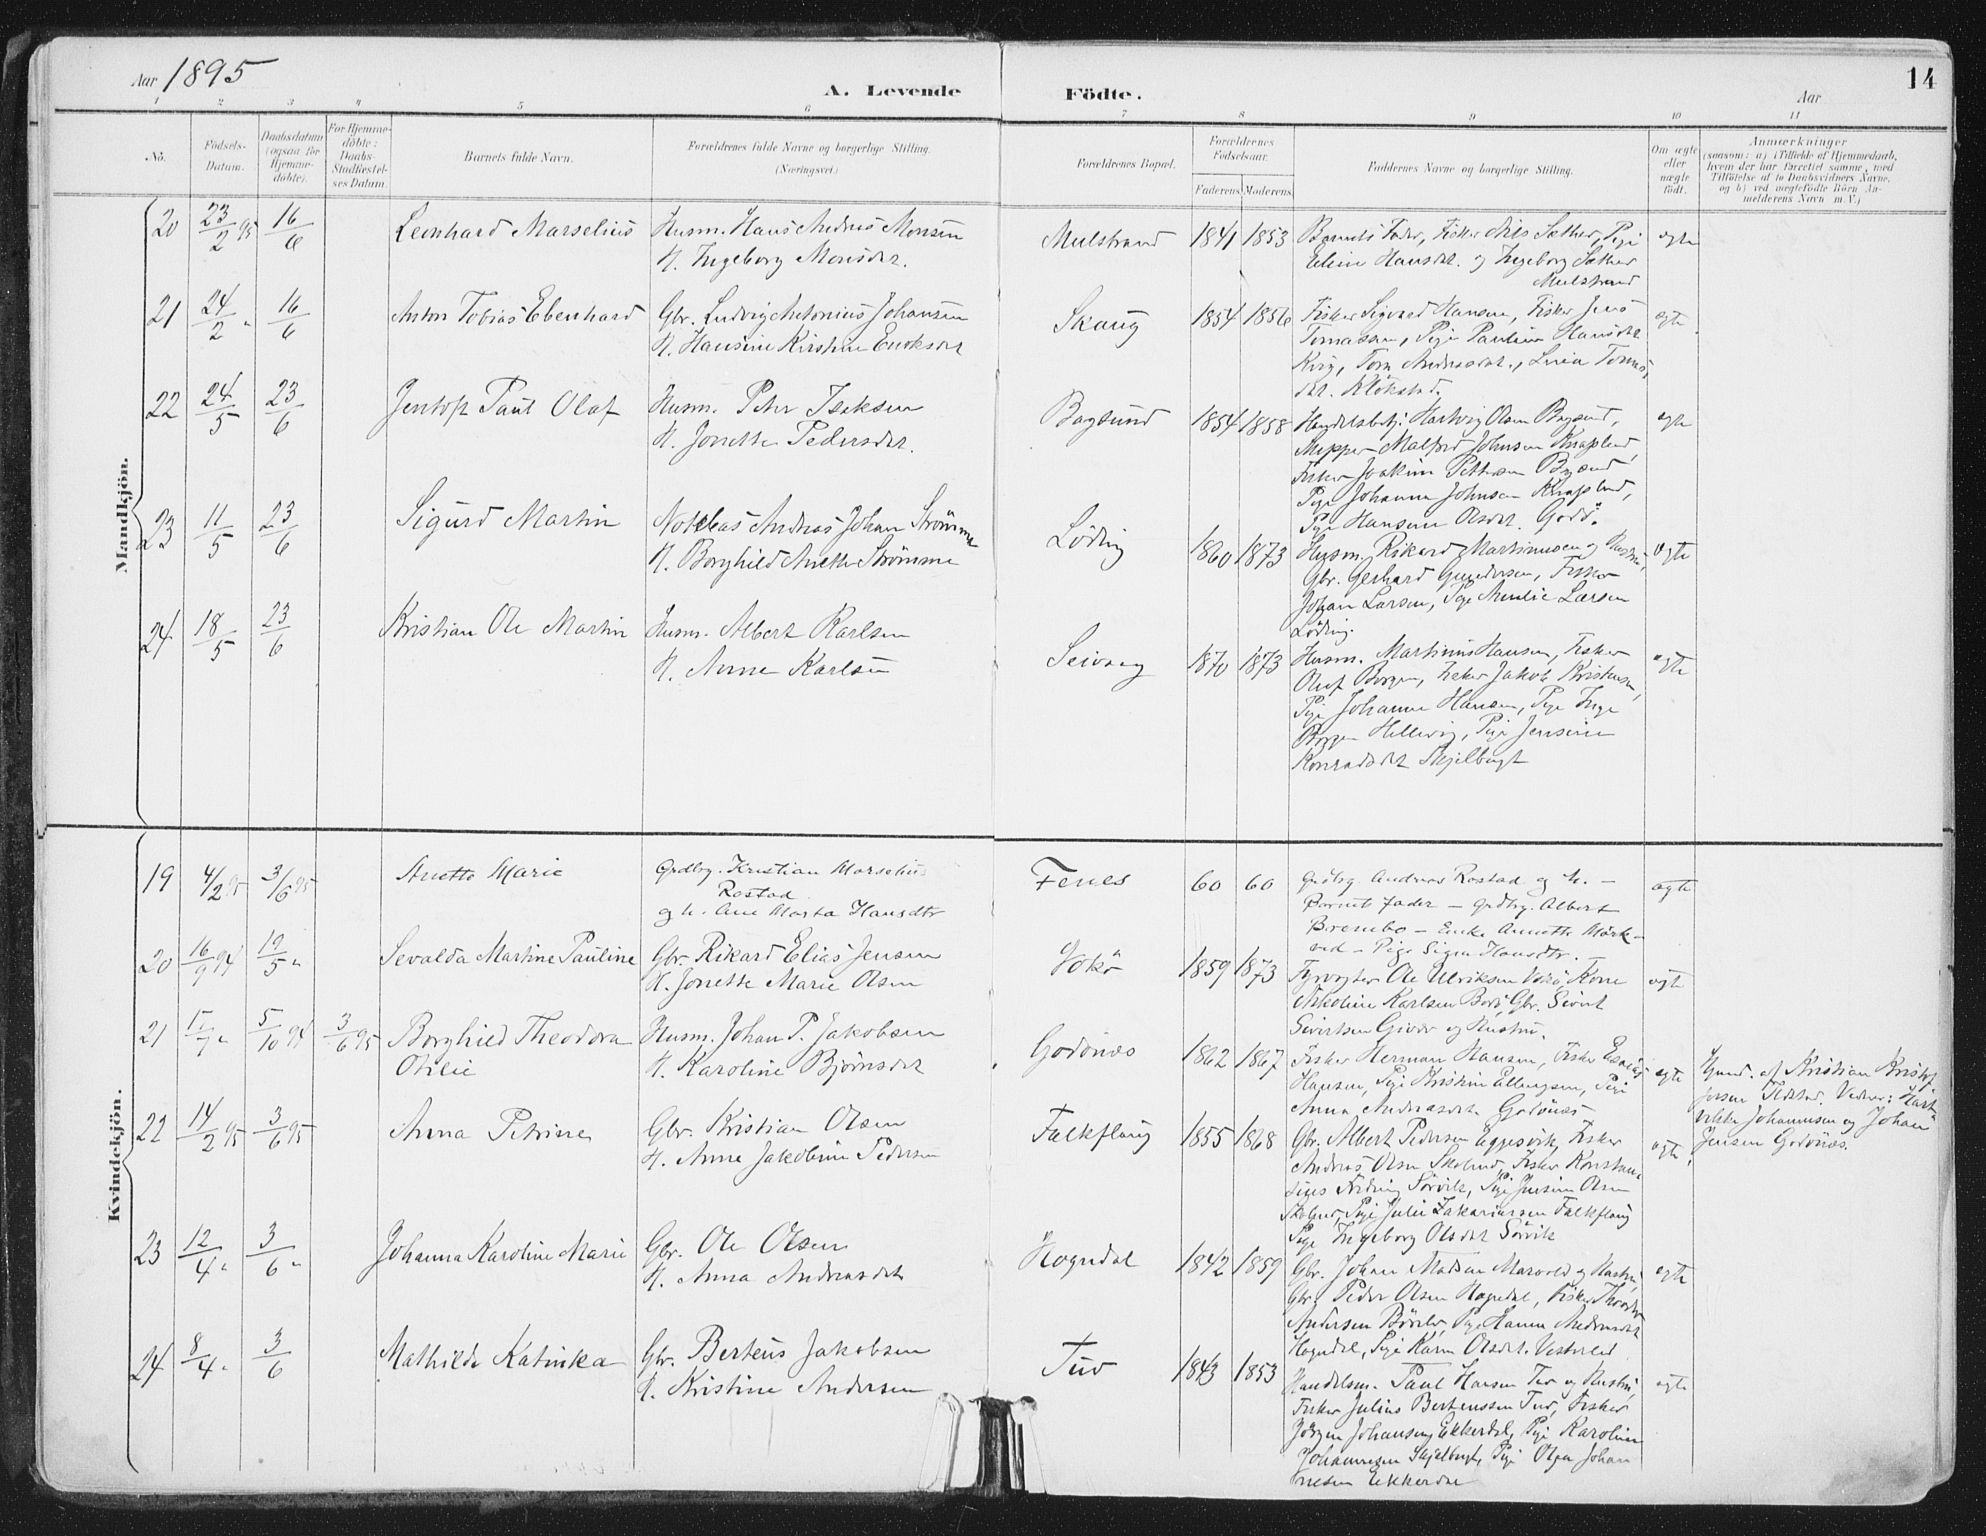 Aar 1895
A. Levende Födte.
Aar
14
1 2 3 4 5 6 7 8 9 10 11
No.
Födsels-Datum.
Daabsdatum (ogsaa for Hjemme-döbte).
For Hjemme-döbte: Daabs-Stadfæstel-ses Datum.
Barnets fulde Navn.
Forældrenes fulde Navne og borgerlige Stilling. (Næringsvei.)
Forældrenes Bopæl.
Forældrenes Födselsaar.
Faderens. Moderens.
Faddernes Navne og borgerlige Stilling.
Om ægte eller uægte födt.
Anmærkninger
(saasom: a) i Tilfælde af Hjemmedaab, hvem der har forrettet samme, med Tilföielse af to Daabsvidners Navne, og b) ved uægtefödte Börn Anmelderens Navn m. V.)
Mandkjön.
20 23/2 95 16/6 Leonhard Marselius
Husm. Hans Andreas Monsen
H. Ingeborg Monsdat.
Mulstrand 1841 1853
Barnets Fader, Fisker Nils Sæther, Pige
Eline Hansdat. og Ingeborg Sæther
Mulstrand
ægte
21 24/2 " 16/6 Anton Tobias Ebenhard
Gbr. Ludvig Antonius Johansen
H. Hansine Kirstine Enoksdat
Skaug 1854 1856
Fisker Sigvard Hansen, Fisker Jens
Tomassen, Pige Pauline Hansdat
dat. Klökstad.
ægte
22 24/5 23/6 Jentoft Paul Olaf
Husm. Peter Isaksen
H. Jonette Pedersdat.
Bogsund 1854 1858
Handelsbetj. Hartvig Olsen
Fisker Joakim
Pige Johanna Johnsen
Pige Hansine Olsdat. Godö.
ægte
23 11/5 23/6 Sigurd Martin
Notebas Andreas Johan Strømme
H. Borghild Anette Strømme
Löding 1860 1873
Husm. Rikard Martinussen og Hustru,
Gbr. Gerhard Gundersen, Fisker
Johan Larsen, Pige Amalie Larsen
Löding.
ægte
24 18/5 23/6 Kristian Ole Martin
Husm. Albert Karlsen
H. Anne Karlsen
Seivaag 1870 1873
Husm. Martinus Hansen, Fisker
Oluf Borgen, Fisker Jakob Kristensen,
Pige Johanna Hansen, Pige Inga
Borgen Hellevig, Pige Jensine
Konradsdat Skjelbugt
ægte
Kvindekjön.
19 4/2 95 3/6 95 Anette Marie
Grdbg. Kristian Marselius
Rostad
og h. Ane Marta Hansdtr
Fenes 60 60
Grdbg. Andreas Rostad og h. –
Barnets Fader – grdbg. Albert
Brembo – Enke Annette Mörk-
ved – Pige Signe Hansdtr. –
ægte
20 16/9 94 19/5 " Sevalda Martine Pauline
Gbr. Rikard Elias Jensen
H. Jonette Marie Olsen
1859 1873
Fyrvogter Ole Ulriksen Kone
Nikoline Karlsen Gbr. Sivert
Sivertsen Giver og Hustru.
ægte
21 17/7 " 5/10 94 3/6 95 Borghild Theodora
Otilie
Husm. Johan P. Jakobsen
H. Karoline Bjørnsdat
Godönes 1862 1867
Fisker Herman Hansen, Fisker
Hansen, Pige Kristine Ellingsen, Pige
Anna Andreasdat. Godönes
ægte
af Kristian
Johannesen og Johan
Jensen Godönæs.
22 14/2 95 3/6 95 Anna Petrine
Gbr. Kristian Olsen
H. Anne Jakobine Pedersen
Falkflaug 1855 1868
Gbr. Albert Pedersen Eggesvik, Fisker
Andreas Olsen Skolund, Fisker Konstan-
Sörvik, Pige Jensine Olsen
Pige Julie Zakariassen Falkflaug
Pige Ingeborg Olsdat Sörvik
ægte.
23 12/4 " 3/6 " Johanna Karoline Marie
Gbr. Ole Olsen
H. Anna Andreasdat
Hogndal 1842 1859
Gbr. Johan Madsen Marvold og Hustru,
Gbr. Peder Olsen Hogndal, Fisker Theodor
Andersen Pige Hanna Andreasdat
Hogndal, Pige Karen Olsdat. Vesterlid
ægte
24 8/4 " 3/6 Mathilde Katinka
Gbr. Berteus Jakobsen
H. Kristine Andersen
Tuv 1843 1853
Handelsm. Paul Hansen Tuv og Hustru,
Fisker Julius Berteussen Tuv, Fisker
Jörgen Johansen Ekkerdal, Pige Karoline
Johannesen Skjelbugt, Pige Olga Johan
nesen Ekkerdal
ægte